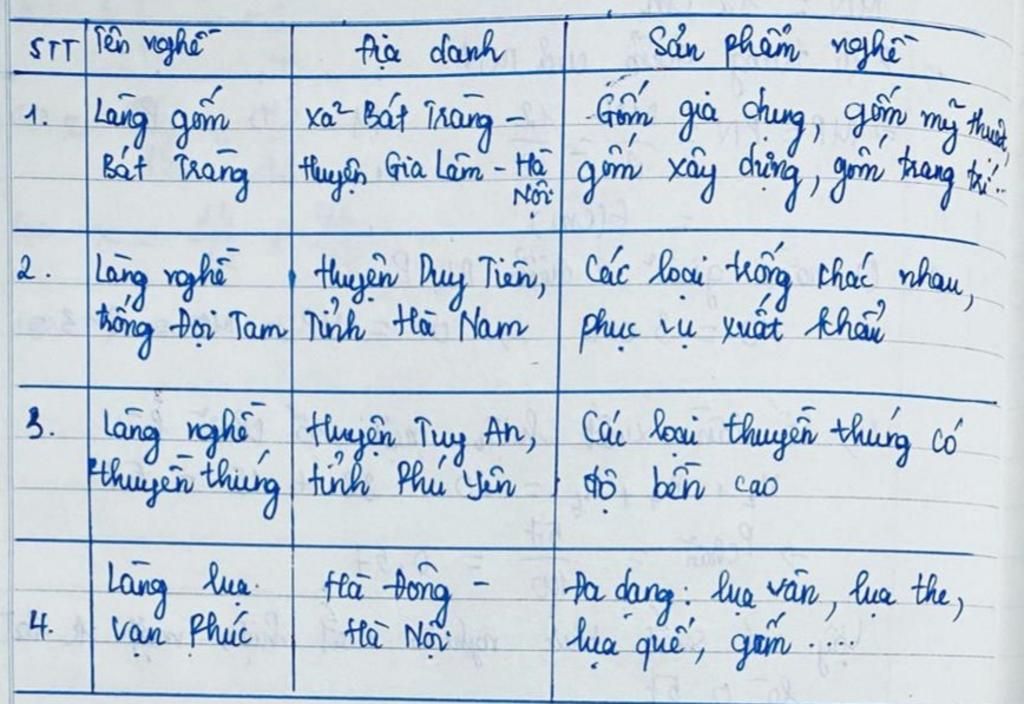 STT Tên nghề Địa danh Sản phẩm nghề
1. Làng gốm xã Bát Tràng - Gốm gia dụng, gốm mỹ thuật,
Bát Tràng Huyện Gia Lâm - Hà Nội gốm xây dựng, gốm trang trí...
2. Làng nghề Huyện Duy Tiên, Các loại trống khác nhau,
trống Đọi Tam Tỉnh Hà Nam phục vụ xuất khẩu
3. Làng nghề Huyện Tuy An, Các loại thuyền thúng có
thuyền thúng tỉnh Phú Yên độ bền cao
Làng lụa Hà Đông - Đa dạng: lụa vân, lụa the,
4. Vạn Phúc Hà Nội lụa quế, gấm ....